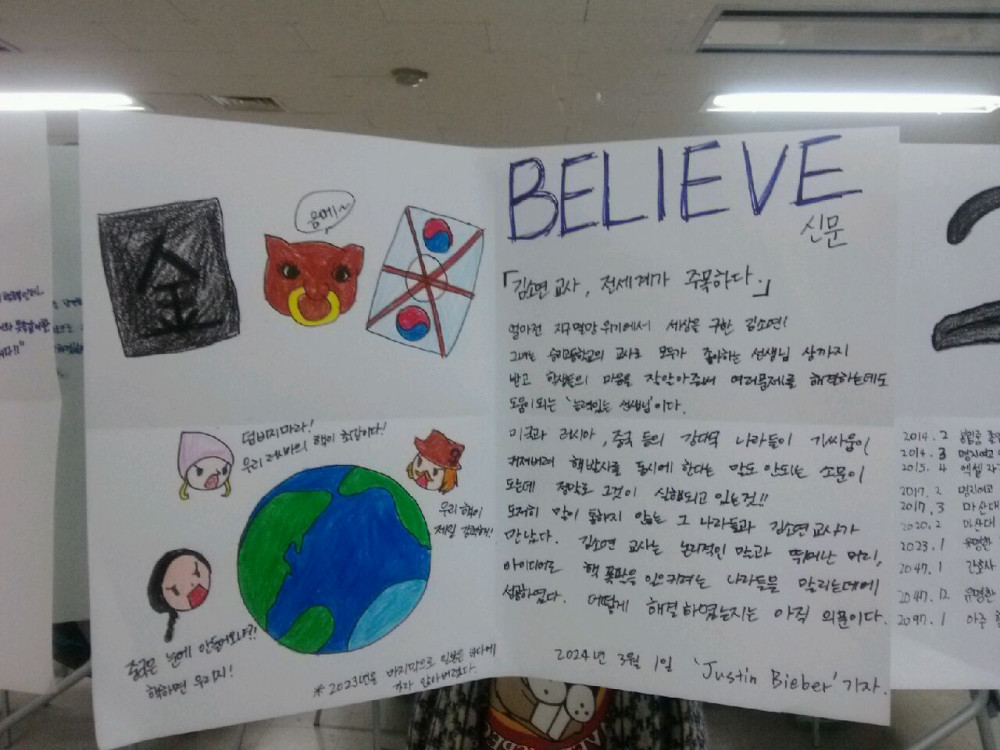 金
음메~
덤비지마라!
우리 러시아의 핵이 최강이다!
우리 핵이
제일 강하거든!
중국은 눈에 안들어오나?!
핵하면 우리지!
※ 2023년을 마지막으로 일본은 바다에
가라 앉아버렸다.
BELIEVE
신문
「김소연 교사, 전세계가 주목하다.」
얼마전 지구멸망 위기에서 세상을 구한 김소연!
그녀는 승리고등학교의 교사로 모두가 좋아하는 선생님 상까지
받고 학생들의 마음을 잘알아주워 여러문제를 해결하는데도
도움이되는 '능력있는 선생님'이다.
미국과 러시아, 중국 등의 강대국 나라들이 기싸움이
커져버려 핵발사를 동시에 한다는 말도 안되는 소문이
도는데 정말로 그것이 실행되고 있는것!!
도저히 말이 통하지 않는 그 나라들과 김소연교사가
만났다. 김소연 교사는 논리적인 말과 뛰어난 머리,
아이디어로 핵 폭발을 일으키려는 나라들을 말리는데에
성공하였다. 어떻게 해결하였는지는 아직 의문이다.
2024년 3월 1일 'Justin Bieber' 기자.
2014. 2
2014. 3 명지여고
2015. 4 엑셀 자
2017. 2 명지여고
2017. 3 마산대
2020. 2 마산대
2023. 1 유명한
2047. 1 간호사
2047. 12 유명한
2097. 1 아주